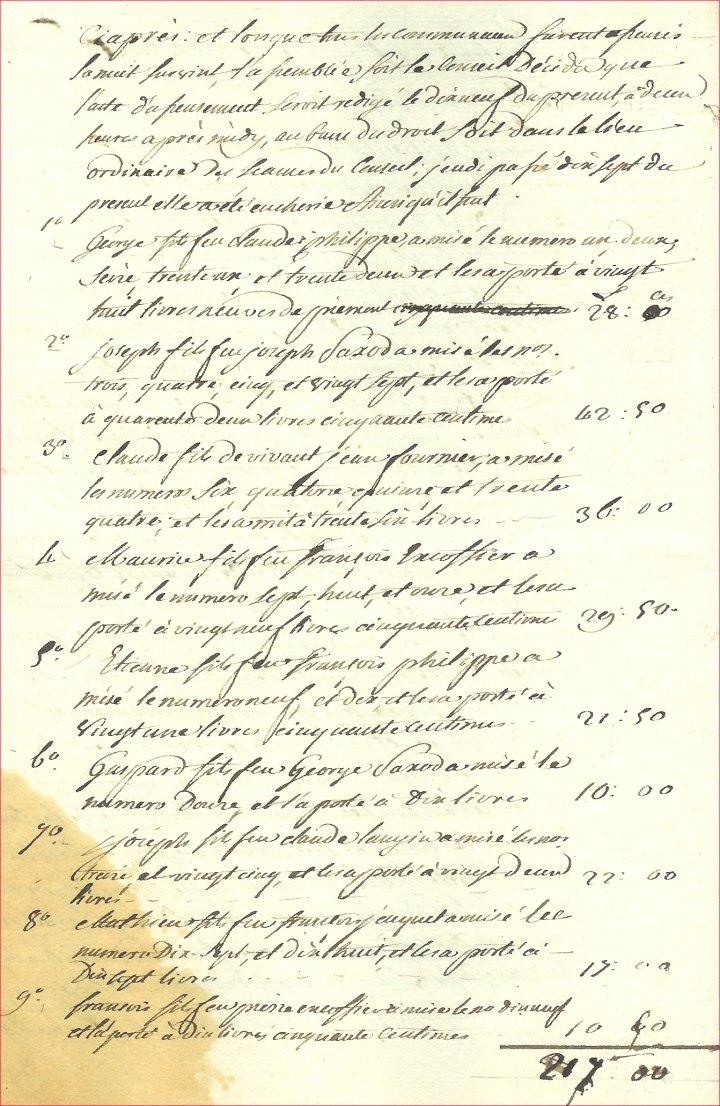 Ciaprès: et lorsque tous les communaux furent afeurés
la nuit survint, l'assemblée soit le Conseil Décida que
l'acte d'assensement seroit redigé le dixneuf du present, à deux
heures après midy, au banc du droit soit dans le lieu
ordinaire des seances du Conseil; jeudi passé dix sept du
present elle a été encherie Ainsi qu'il suit.
1o George fils feu Claude philippe, a misé le numero un, deux,
seize, trente un, et trente deux et les a porté à vingt
huit livres neuves de piemont cinquante centimes 28: 00
2o joseph fils feu joseph Saxod a misé les nos.
trois, quatre, cinq, et vingt sept, et les a porté
à quarente deux livres cinquante centime 42: 50
3o Claude fils de vivant jean fournier, a misé
les numeros six, quatorze, quinze, et trente
quatre; et les a mit à trente six livres 36: 00
4 Maurice fils feu françois Excoffier a
misé le numero sept, huit, et onze, et les a
porté à vingt neuf livres cinquante centime 29: 50
5o Etienne fils feu françois philippe a
misé le numero neuf, et dix et les a porté à
vingt une livres cinquante centimes 21: 50
6o Gaspard fils feu George Saxod a misé le
numero Douze, et l'a porté à Dix livres 10: 00
7o joseph fils feu claude a misé les nos
treize et vingt cinq, et les a porté à vingt deux 22: 00
livres
8o Mathieu fils feu francois jacquet a misé le
numero Dix-sept, et dix huit, et les a porté à
Dix sept livres 17: 00
9o fransois fils feu pierre excoffier a misé le no dixneuf
et l'a porté à Dix livres cinquante Centimes 10 50
217 00